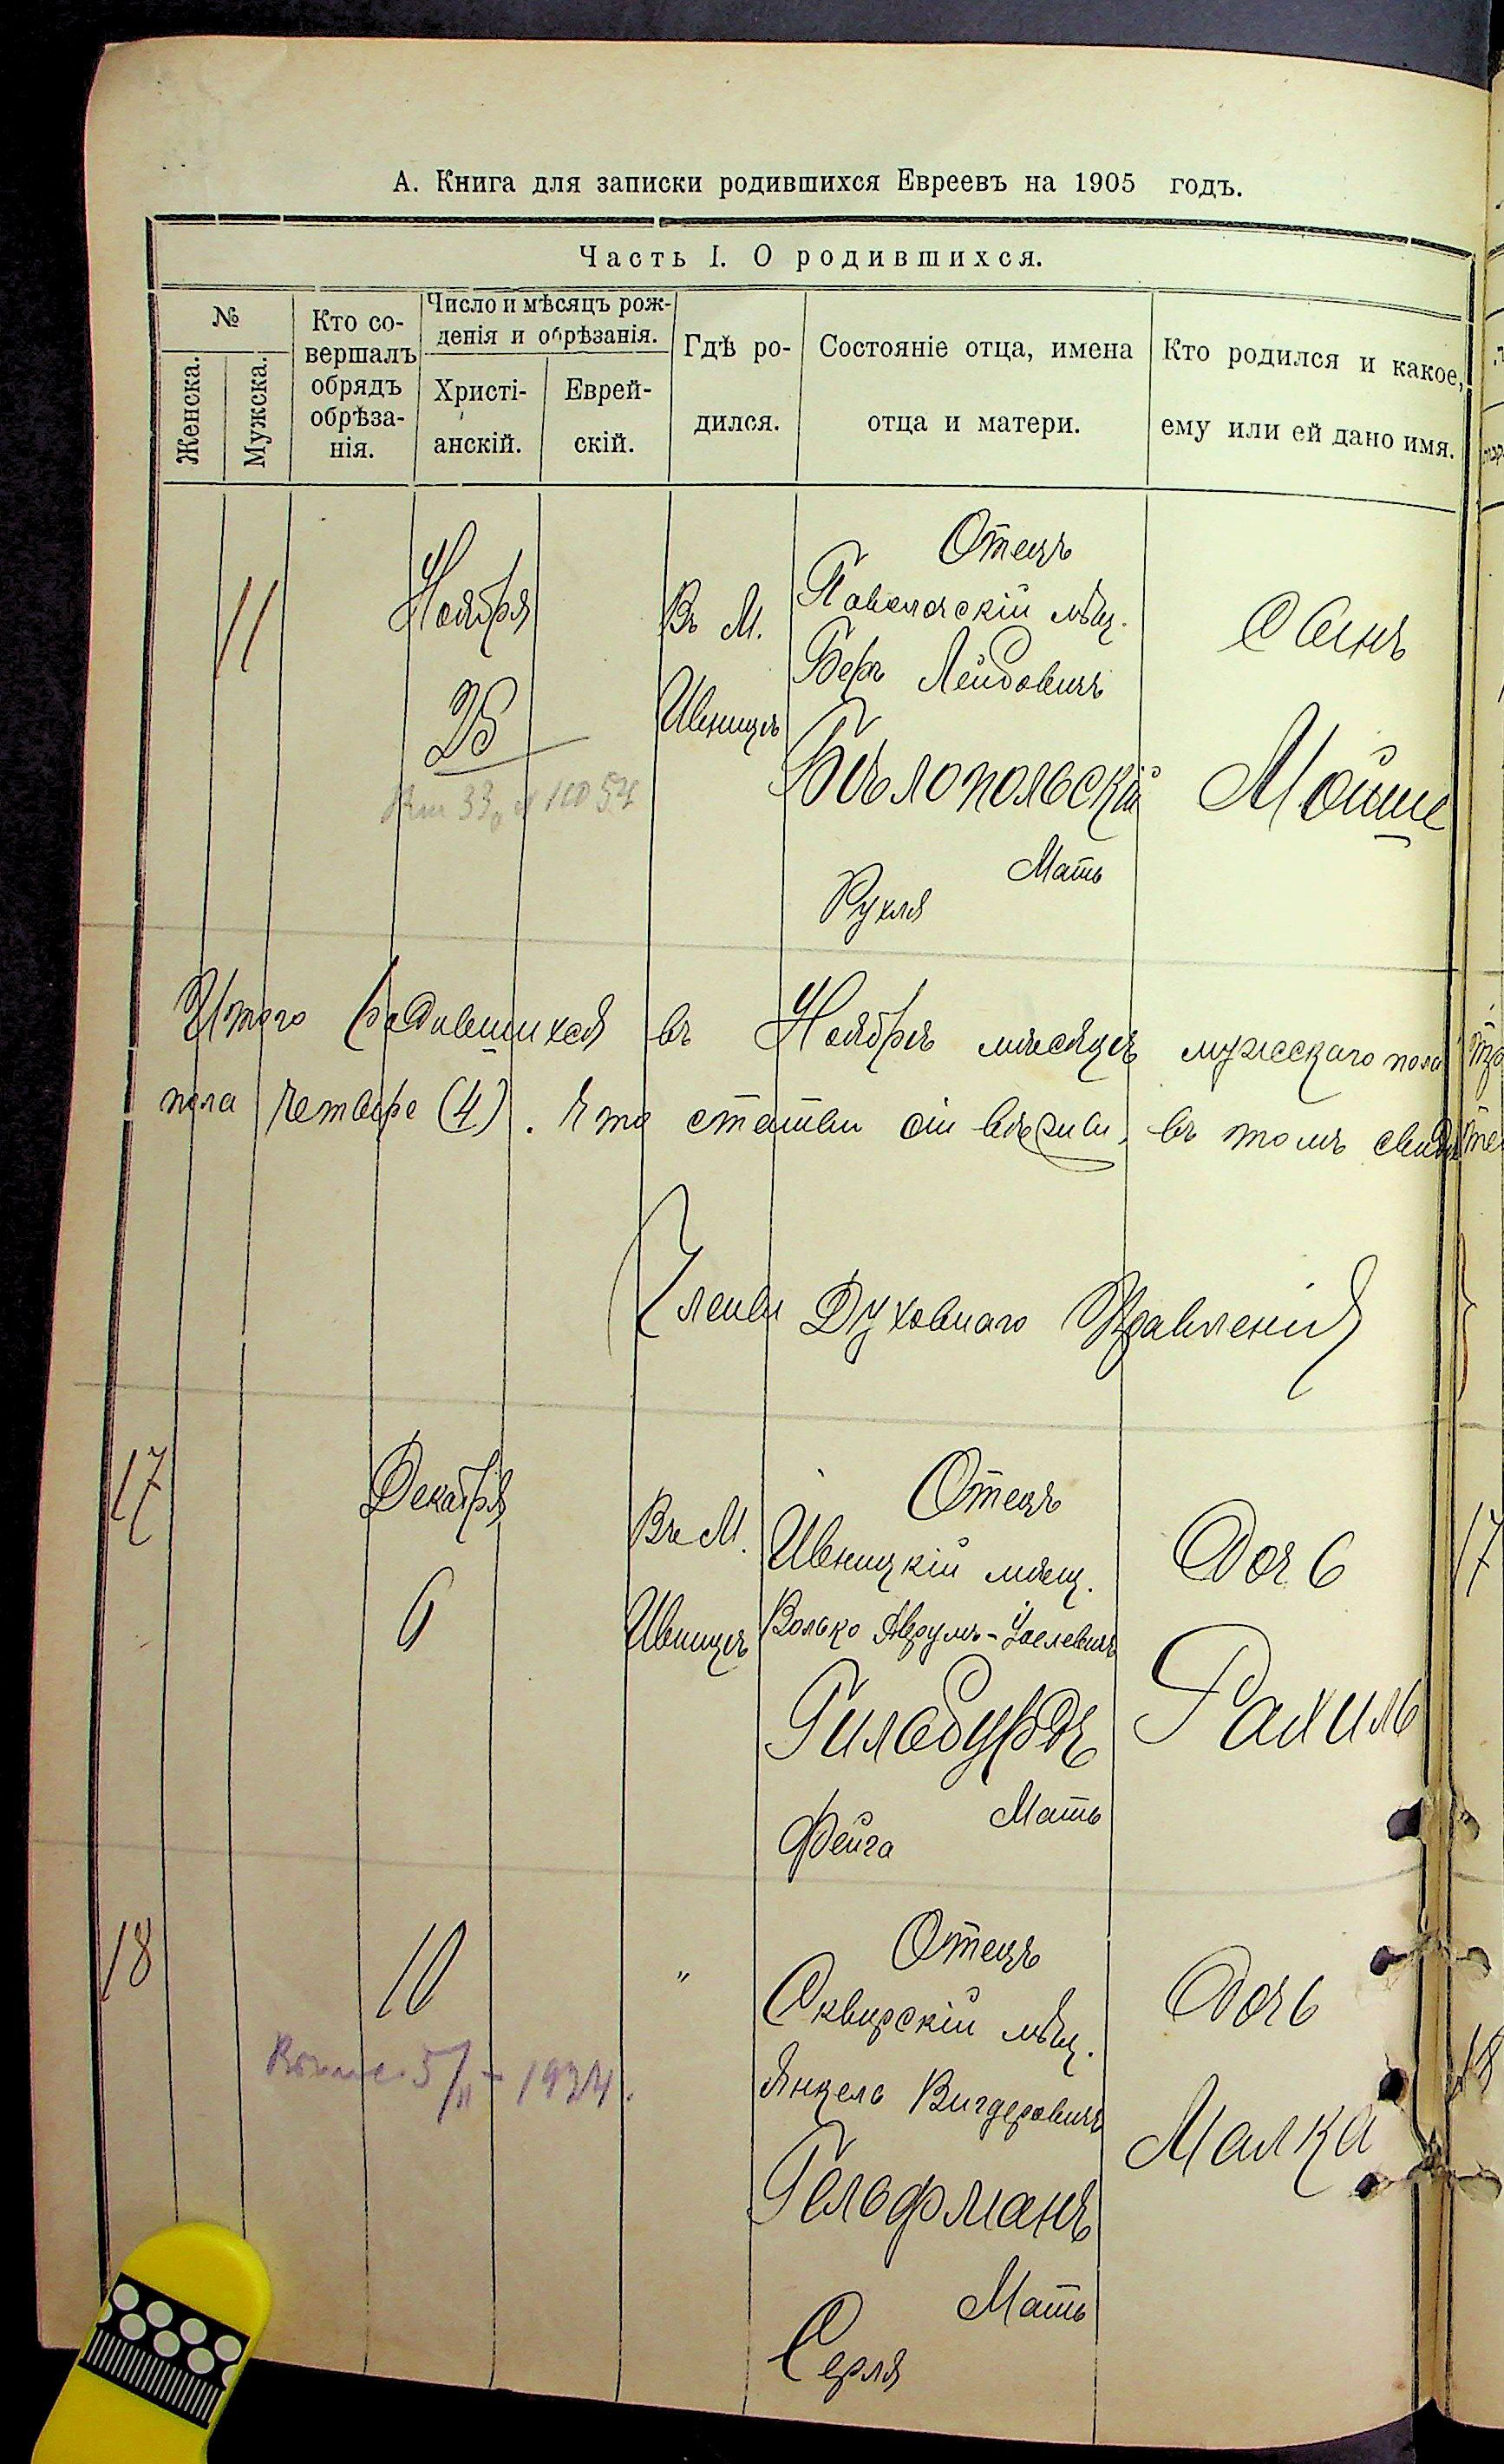 А. Книга для записки родившихся Евреевъ на 1905 годъ.
Часть I. О родившихся.
№
Женска.
Мужска.
Кто со-
вершалъ
обрядъ
обрѣза-
нія.
Число и мѣсяцъ рож-
денія и обрѣзанія.
Христі-
анскій.
Еврей-
скій.
Гдѣ ро-
дился.
Состояніе отца, имена
отца и матери.
Кто родился и какое,
ему или ей дано имя.
11
Ноября
25
Въ М.
Ивницѣ
Отецъ
Паволочскій мѣщ.
Беръ Лейбовичъ
Бѣлопольскій
Мать
Рухля
Сынъ
Мойше
Итого родившихся въ Ноябрѣ мѣсяцѣ мужскаго пола
пола четверо (4). Что статьи сіи вѣрны, въ томъ свидѣ
Члены Духовнаго Правленія
17
Декабря
6
Въ М.
Ивницѣ
Отецъ
Ивницкій мѣщ.
Волько Аврумъ-
Гильбурдъ
Мать
Фейга
Дочь
Рахиль
17
18
10
"
5/II - 1934.
Отецъ
Сквирскій мѣщ.
Янкель Вигдоровичъ
Гельфманъ
Мать
Серля
Дочь
Малка
18